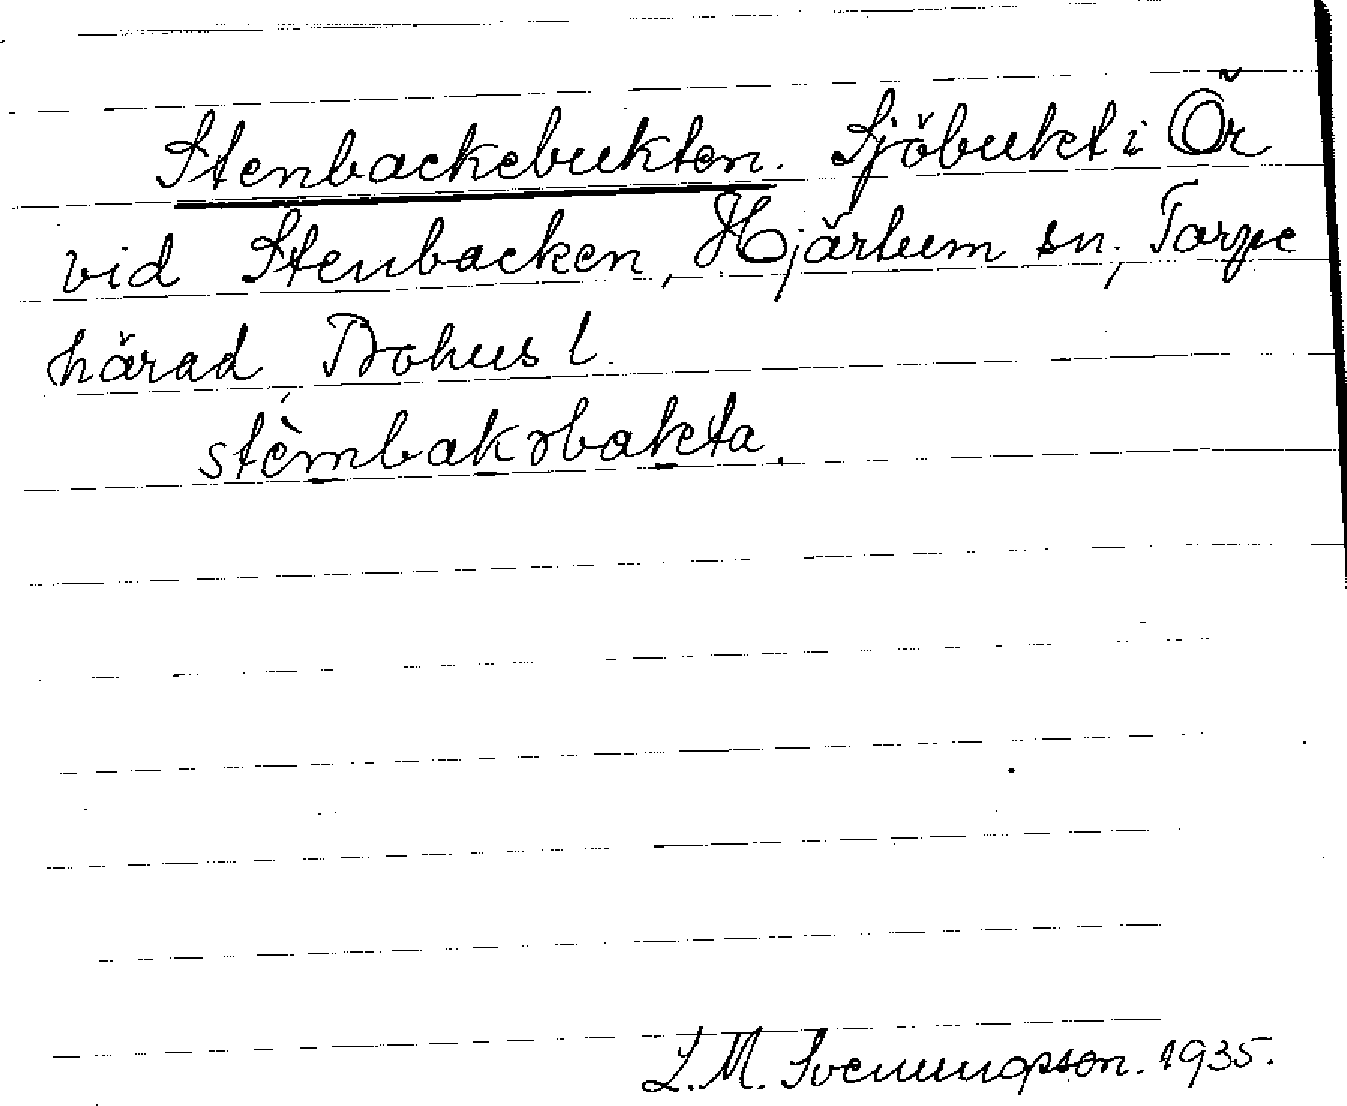 Stenbackebukten. Sjöbukt i Ör
vid Stenbacken, Hjärtum sn, Torpe
härad, Bohus l.
stèmbakəbakta.
L.M. Svenungsson. 1935.